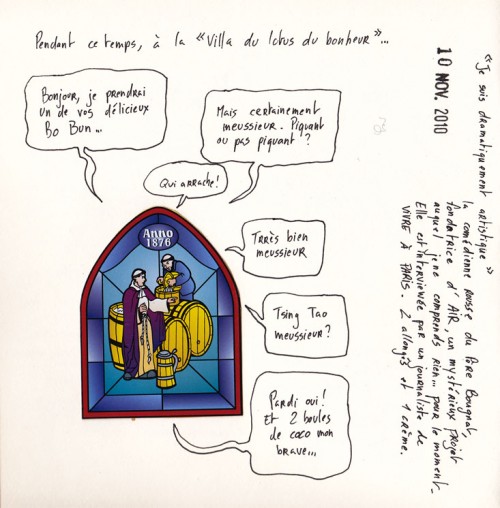 Pendant ce temps, à la «Villa du lotus du bonheur»...
Bonjour, je prendrai
un de vos délicieux
Bo Bun...
Mais certainement
meussieur. Piquant
ou pas piquant ?
Qui arrache!
Trrès bien
meussieur
Tsing Tao
meussieur?
Pardi oui!
Et 2 boules
de coco mon
brave...
Anno
1876
10 NOV. 2010
«Je suis dramatiquement artistique »
la comédienne rousse du Père Bougnat,
fondatrice d'AIR un mystérieux projet
auquel je ne comprends rien... pour le moment.
Elle est interviewée par un journaliste de
VIVRE À PARIS. 2 allongés et 1 crème.